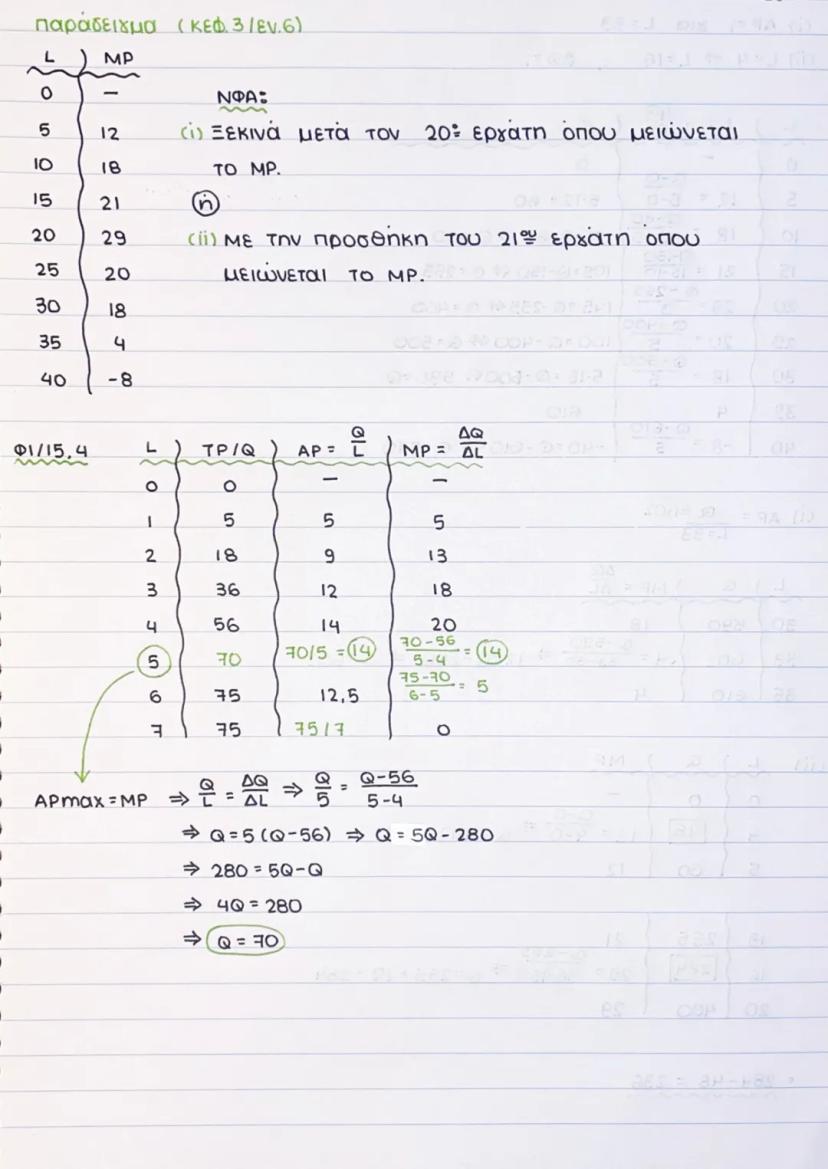 παράδειγμα (ΚΕΦ.3/ΕΝ.6)
L MP
0 –
ΝΦΑ:
5 12 (i) Ξεκινά μετά τον 20º εργάτη όπου μειώνεται
10 18 το MP.
15 21 (ή)
20 29 (ii) Με την προσθήκη του 21ου εργάτη όπου
25 20 μειώνεται το MP.
30 18
35 4
40 -8
Φ1/15,4 L TP/Q AP = Q/L MP = ΔQ/ΔL
0 0 – –
1 5 5 5
2 18 9 13
3 36 12 18
4 56 14 20
5 70 70/5 = 14 70-56/5-4 = 14
6 75 12,5 75-70/6-5 = 5
7 75 75/7 0
APmax = MP ⇒ Q/L = ΔQ/ΔL ⇒ Q/5 = Q-56/5-4
⇒ Q = 5 (Q-56) ⇒ Q = 5Q - 280
⇒ 280 = 5Q-Q
⇒ 4Q = 280
⇒ Q = 70